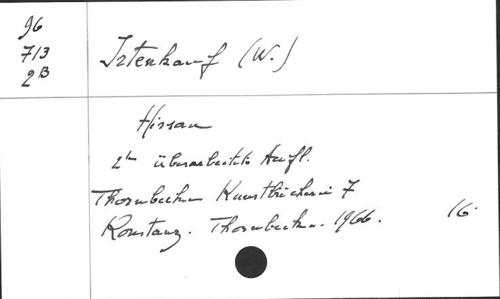 96
713
2B
Irtenkauf (W.)
Hirsau
2te überarbeitete Aufl.
Thorbecke Kunstbücherei 7
Konstanz. Thorbecke. 1966. 16-